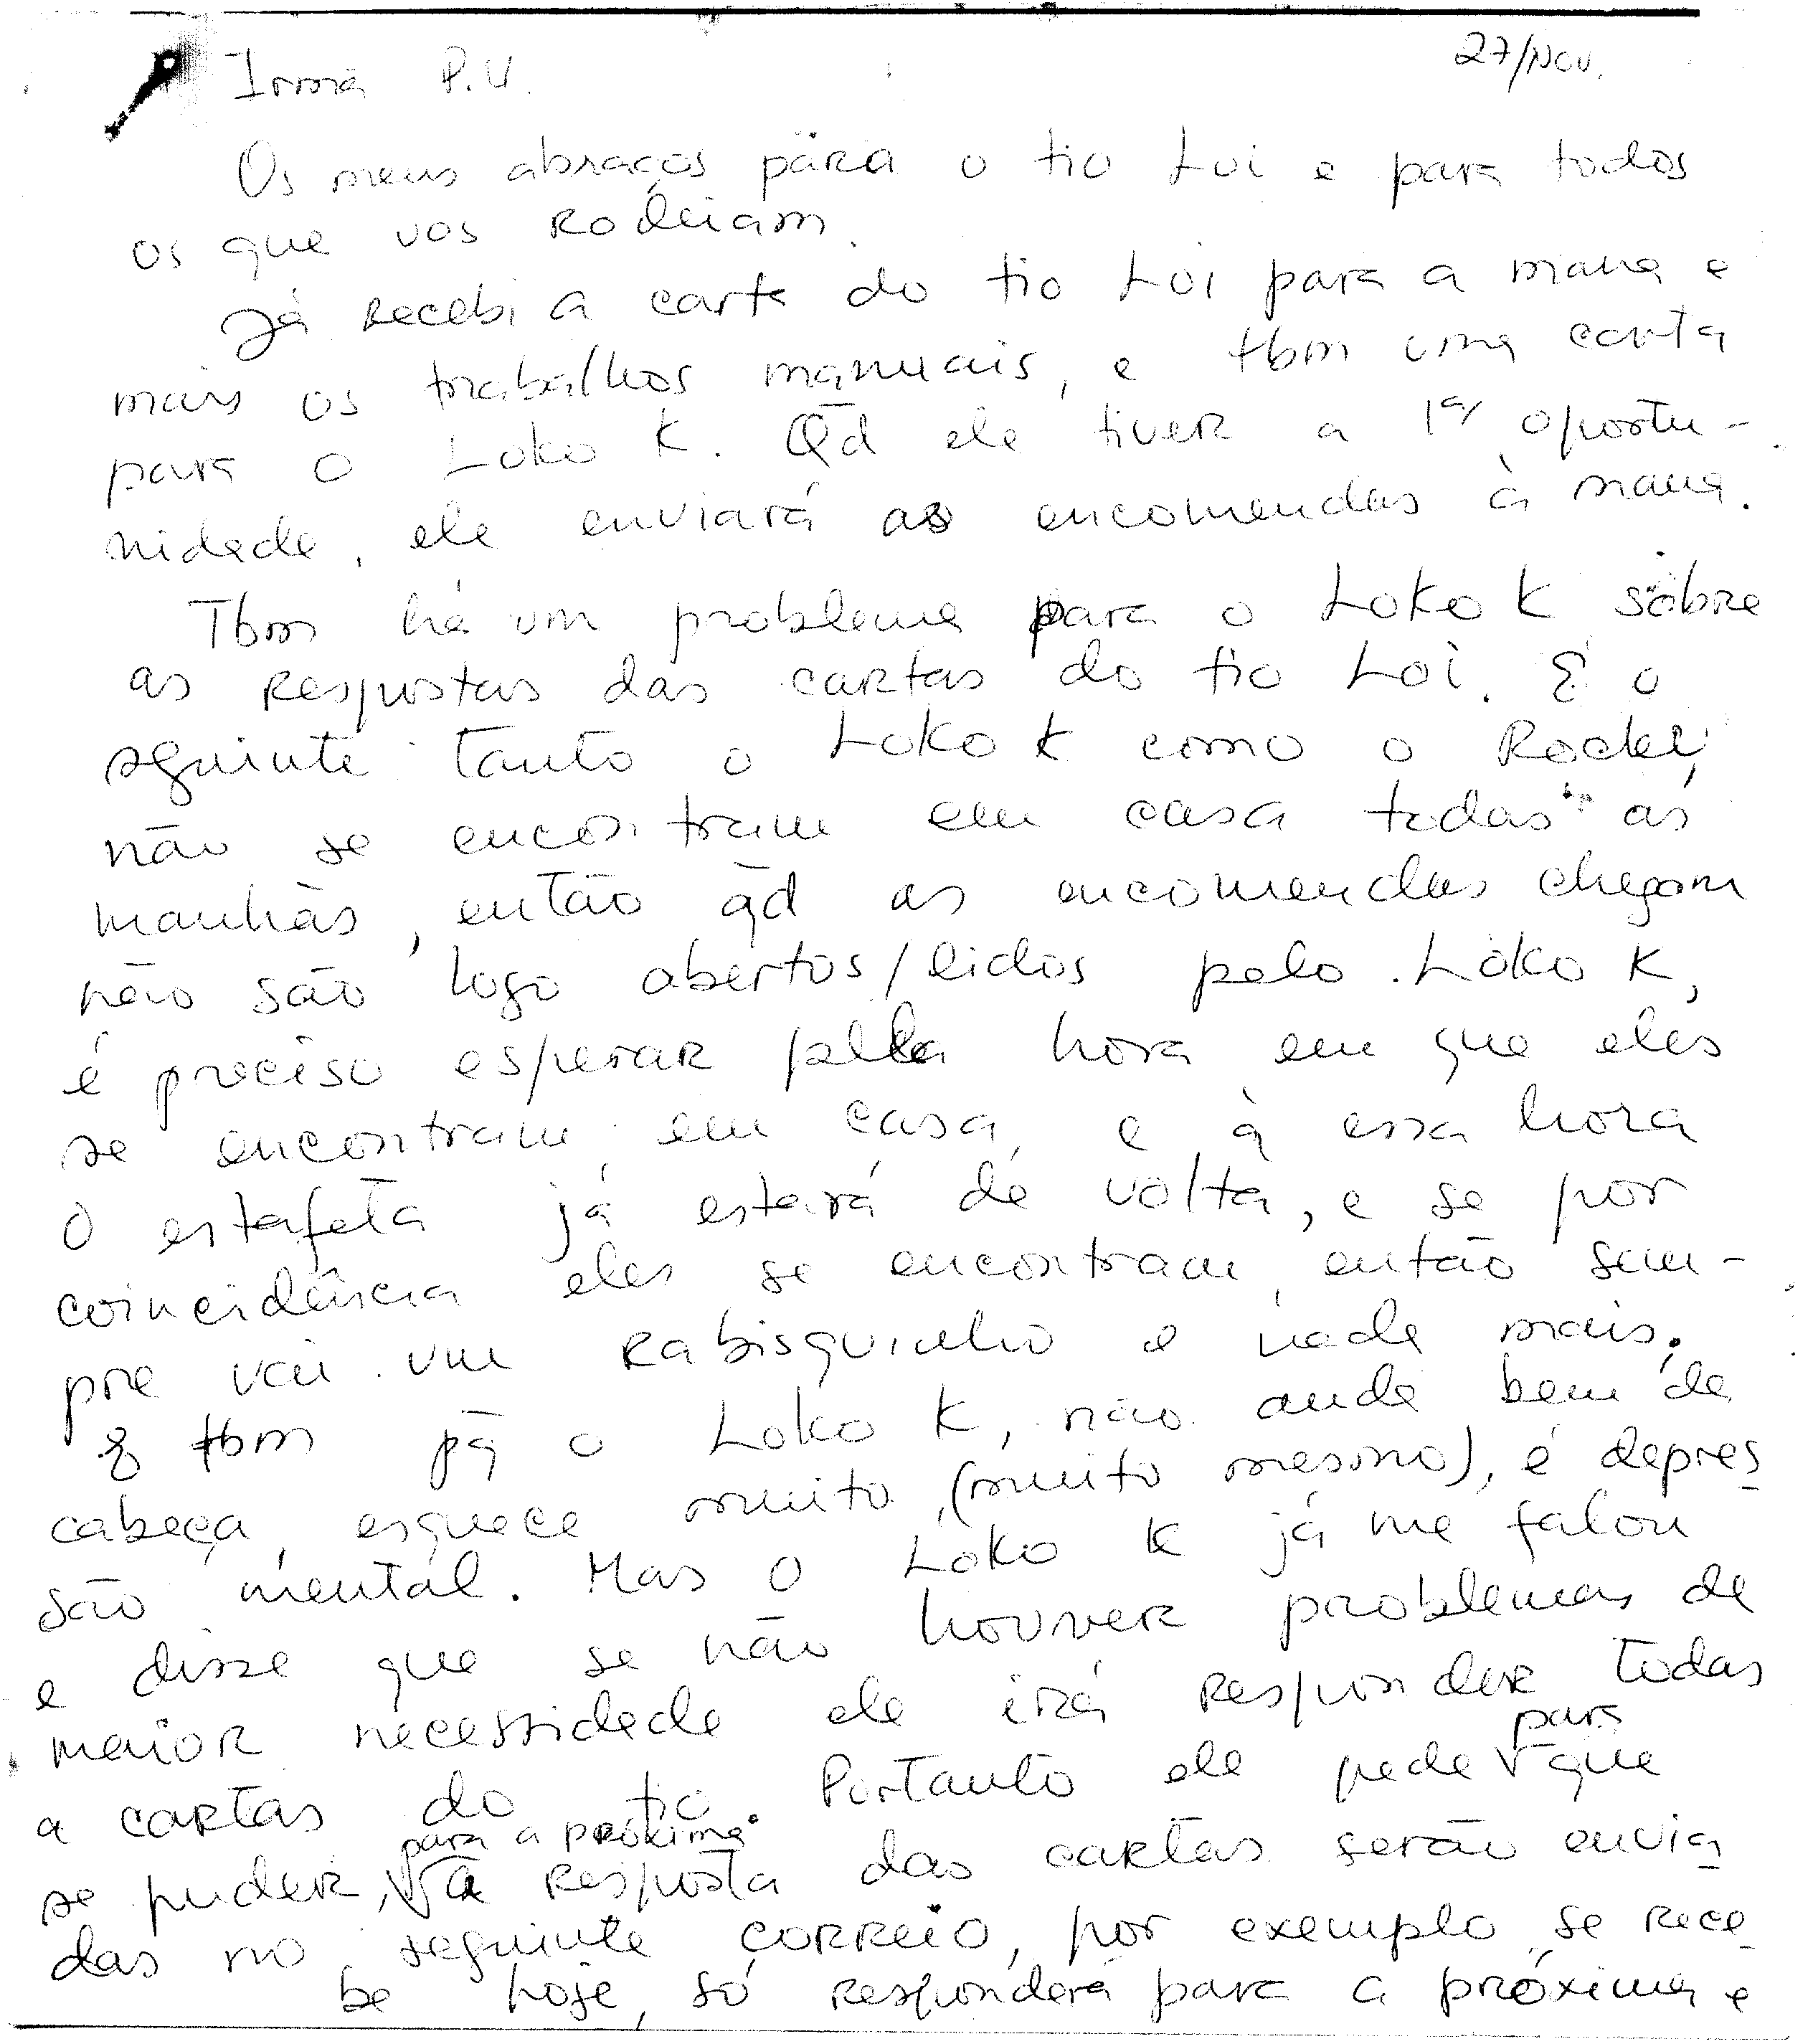 27/Nov.
Irmã P.U.
Os meus abraços para o tio Loi e para todos
os que vos Rodeiam.
Já Recebi a carta do tio Loi para a mana e
mais os trabalhos manuais, e tbm uma carta
para o Loko K. Qd ele tiver a 1ª oportu-
nidade, ele enviará as encomendas à mana.
Tbm há um problema para o Loko K sôbre
as Respostas das cartas do tio Loi. É o
sguinte tanto o Loko K como o
não se encontram em casa todas as
manhãs, então qd as encomendas chegam
não são logo abertos/lidos pelo Loko K,
é preciso esperar pela hora em que eles
se encontram em casa, e à essa hora
o estafeta já estará de volta, e se por
coincidência eles se encontram então sem-
pre vai um Rabisquinho e nada mais.
E tbm já o Loko K, não anda bem de
cabeça, esquece muito, (muito mesmo), é depres
são mental. Mas o Loko K já me falou
e disse que se não houver problemas de
maior necessidade ele irá Responder todas
a cartas do tio. Portanto ele pede para que
se puder, para a próxima a Resposta das cartas serão envia
das no seguinte correio, por exemplo se Rece
be hoje, só Responderá para a próxima e